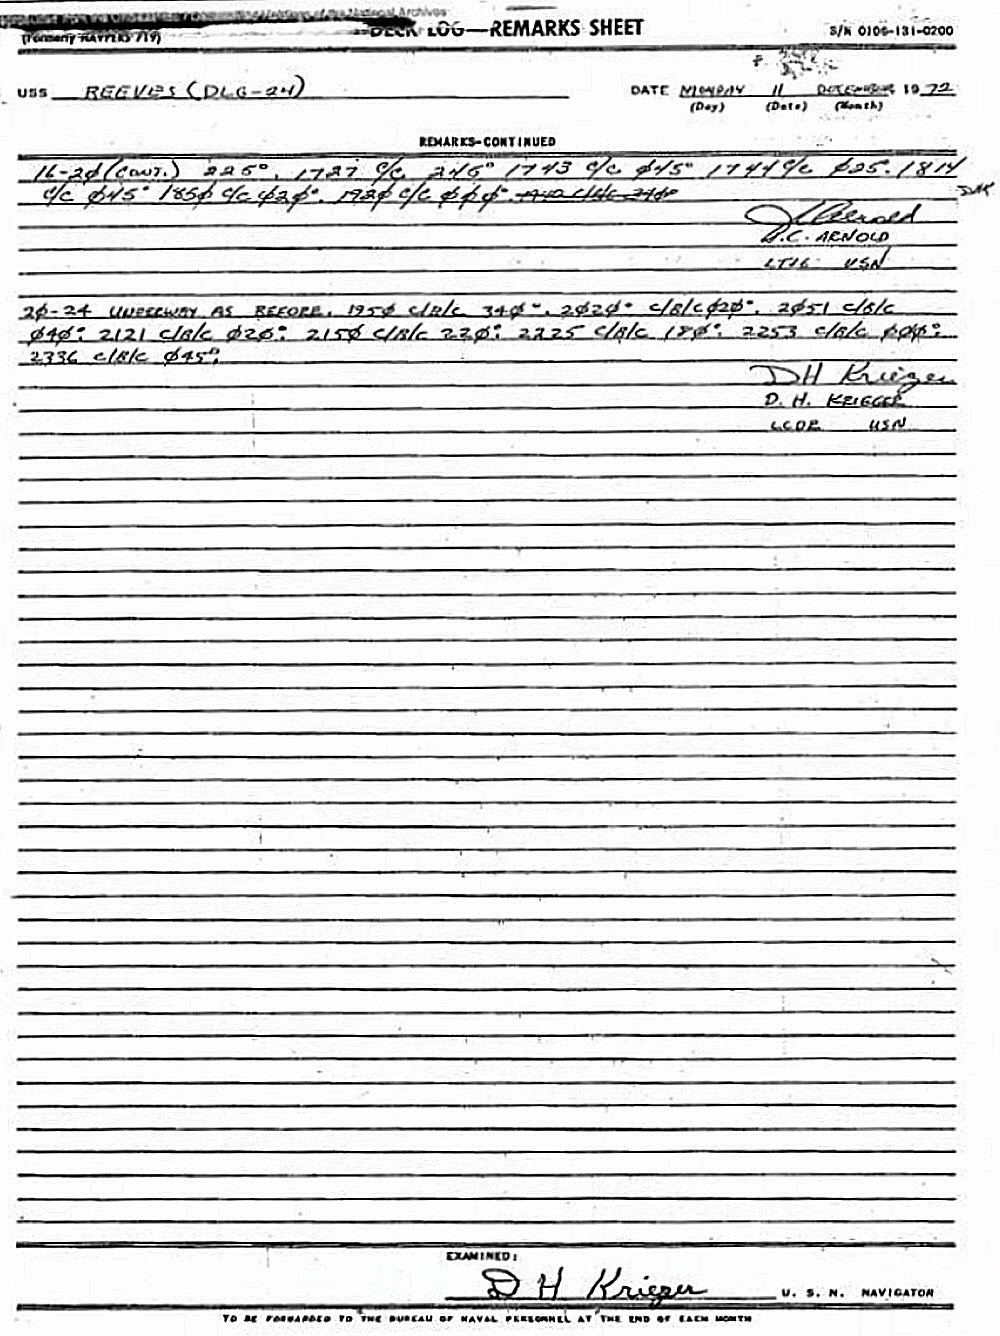 of the National Archives
(Formerly NAVPERS 719)
DECK LOG—REMARKS SHEET
S/N 0106-131-0200
USS REEVES (DLG-24)
DATE MONDAY 11 DECEMBER 19 72
(Day) (Date) (Month)
REMARKS-CONTINUED
16-2Ø (CONT.) 225°. 1727 C/C 245° 1743 C/C Ø45° 1744 C/C Ø25. 1814
C/C Ø45° 185Ø C/C Ø2Ø°. 192Ø C/C ØØØ°.
A.C. ARNOLD
LTJG USN
2Ø-24 UNDERWAY AS BEFORE. 195Ø C/B/C 34Ø°. 2Ø2Ø° C/B/C Ø2Ø°. 2Ø51 C/B/C
Ø4Ø°. 2121 C/B/C Ø2Ø°. 215Ø C/B/C 22Ø°. 2225 C/B/C 18Ø°. 2253 C/B/C ØØØ°.
2336 C/B/C Ø45°.
D H Krieger
D. H. KRIEGER
LCDR USN
EXAMINED:
D H Krieger
U. S. N. NAVIGATOR
TO BE FORWARDED TO THE BUREAU OF NAVAL PERSONNEL AT THE END OF EACH MONTH